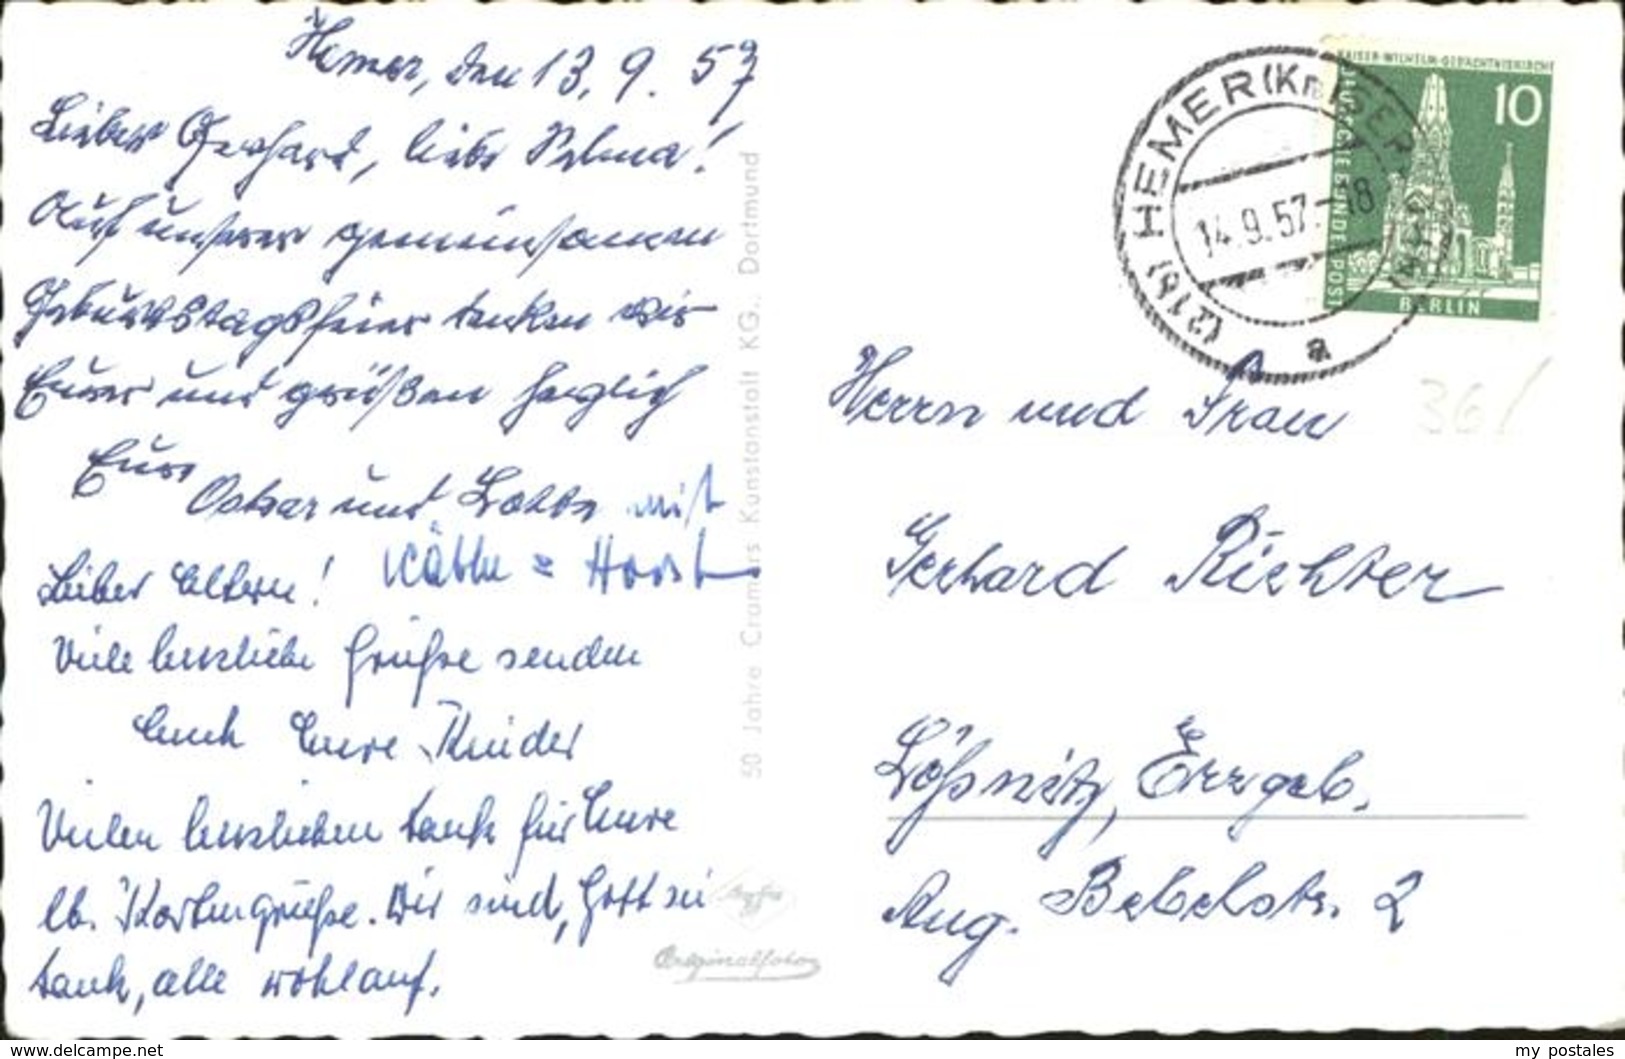 Hemer, den 13. 9. 57
Lieber Gerhard, liebe Selma!
Auf unserer gemeinsamen
Geburtstagsfeier denken wir
Eurer und grüßen herzlich
Eure
Oskar und Lotte mit
Käthe = Horst
Lieber Eltern!
Viele herzliche Grüße senden
Euch Eure Kinder
Vielen herzlichen Dank für Eure
lb. Kartengrüße. Wir sind, Gott sei
Dank, alle wohlauf.
50 Jahre Cramers Kunstanstalt KG., Dortmund
Agfa
Originalfoto
(21b) HEMER (Kr. ISERLOHN)
14.9.57.-18
a
KAISER-WILHELM-GEDÄCHTNISKIRCHE
DEUTSCHE BUNDESPOST
10
BERLIN
36/
Herrn und Frau
Gerhard Richter
Lößnitz, Erzgeb.
Aug. Bebelstr. 2
www.delcampe.net
my postales